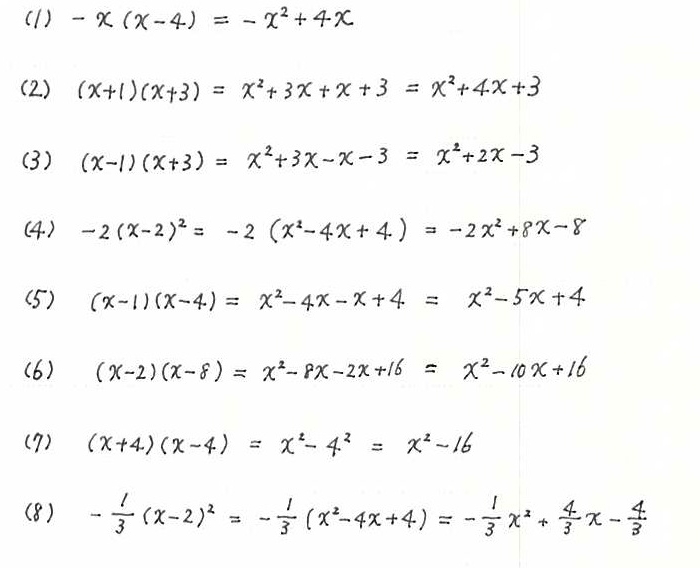 (1) - x (x-4) = - x² + 4x
(2) (x+1)(x+3) = x² + 3x + x + 3 = x² + 4x + 3
(3) (x-1)(x+3) = x² + 3x - x - 3 = x² + 2x - 3
(4) -2(x-2)² = -2 (x² - 4x + 4) = -2x² + 8x - 8
(5) (x-1)(x-4) = x² - 4x - x + 4 = x² - 5x + 4
(6) (x-2)(x-8) = x² - 8x - 2x + 16 = x² - 10x + 16
(7) (x+4)(x-4) = x² - 4² = x² - 16
(8) - 1/3 (x-2)² = - 1/3 (x² - 4x + 4) = - 1/3 x² + 4/3 x - 4/3